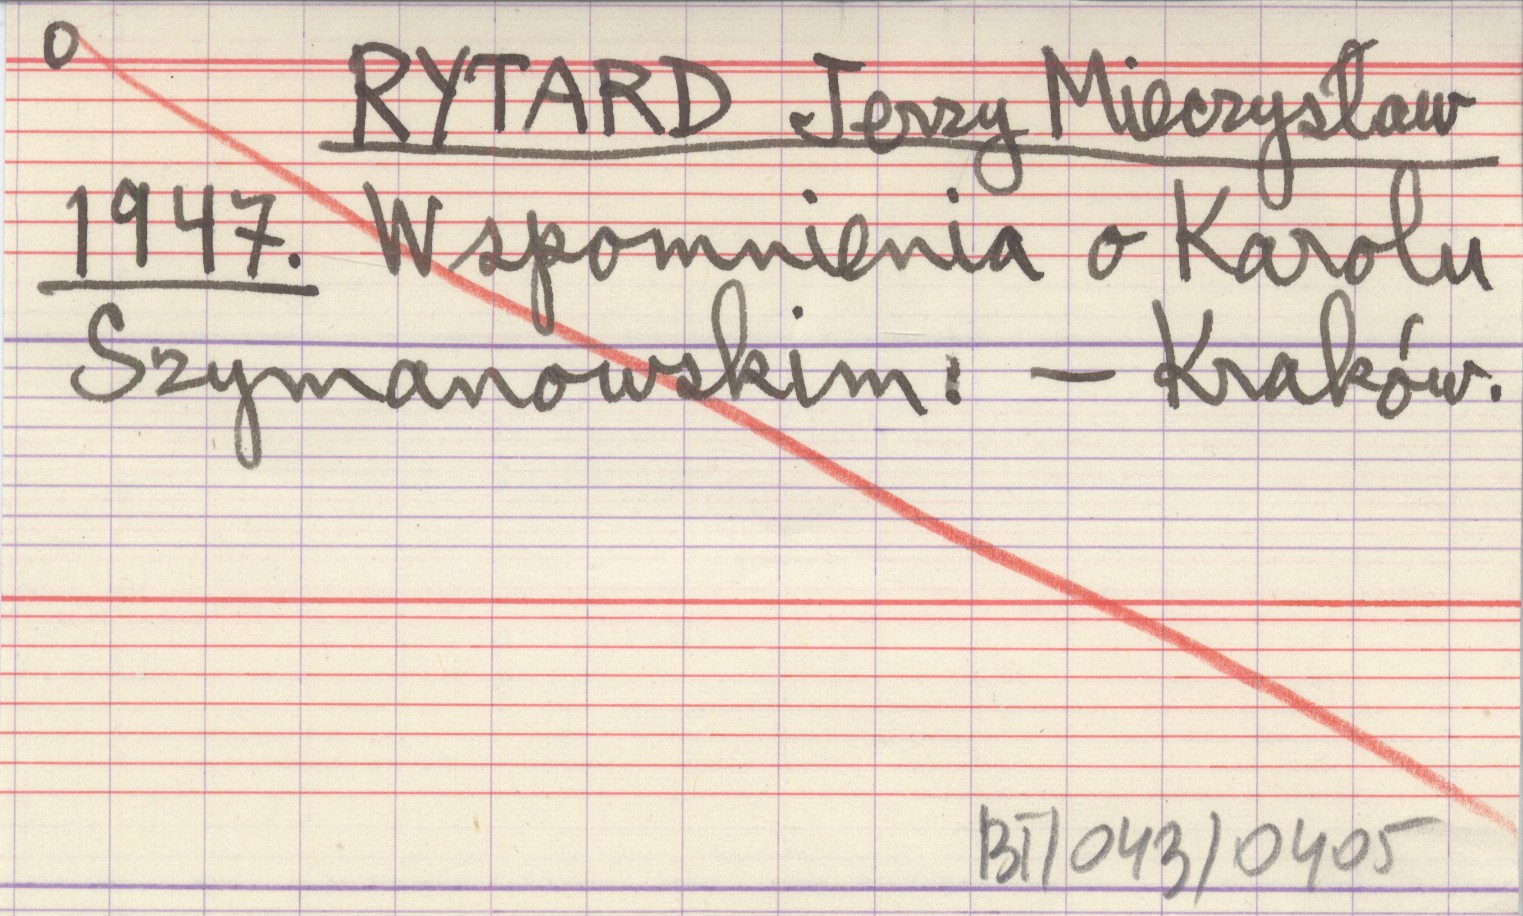 O
RYTARD Jerzy Mieczysław
1947. Wspomnienia o Karolu
Szymanowskim: – Kraków.
BT/043/0405